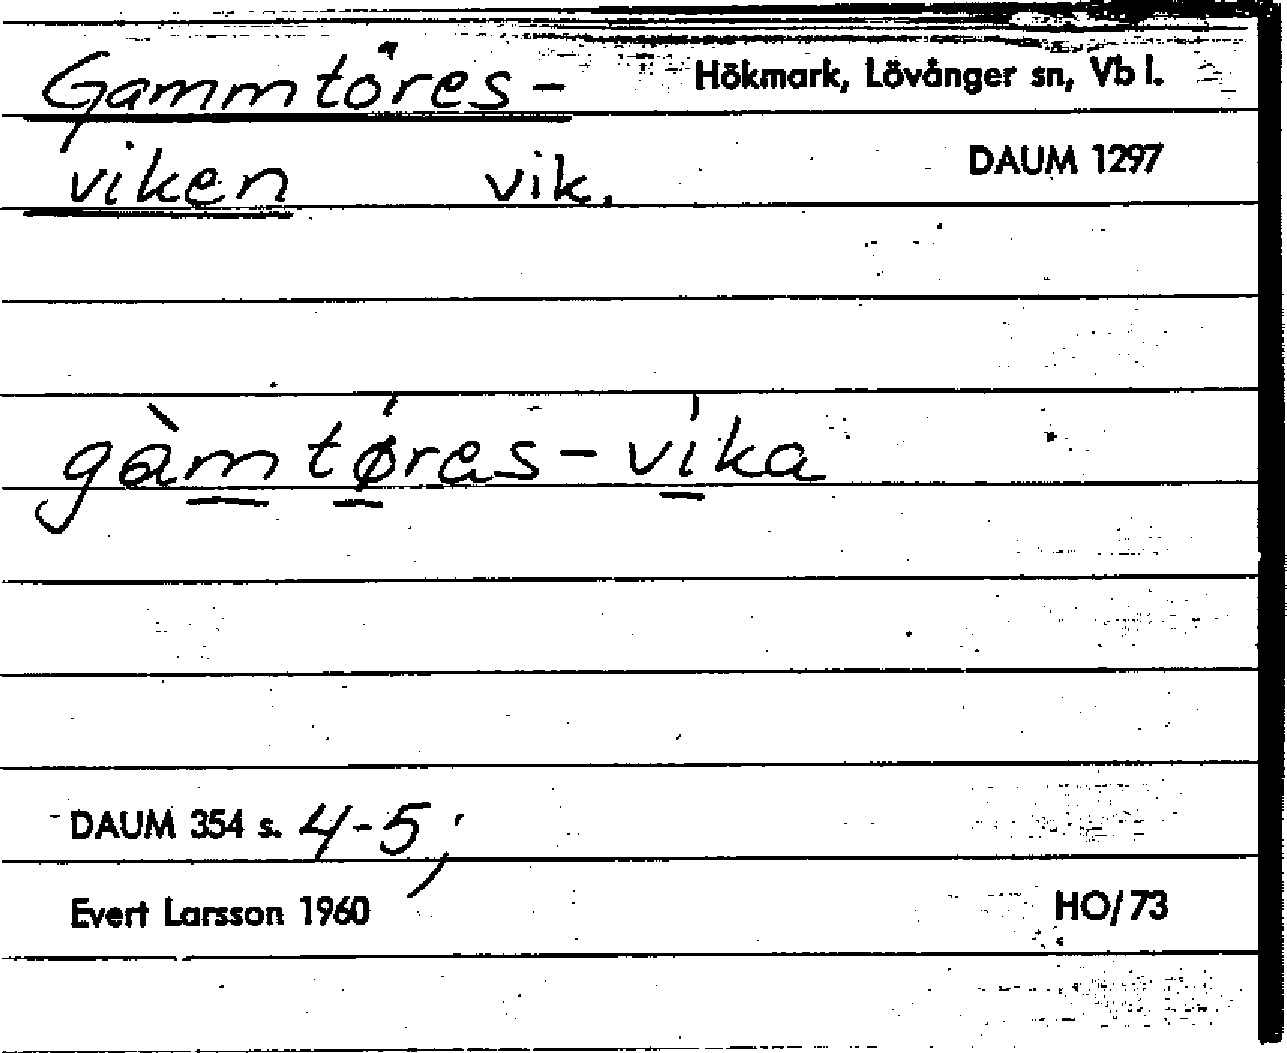 Gammtöres- Hökmark, Lövånger sn, Vb l.
viken vik. DAUM 1297
gàmtø̀res-vı́ka
DAUM 354 s. 4-5,
Evert Larsson 1960 HO/73